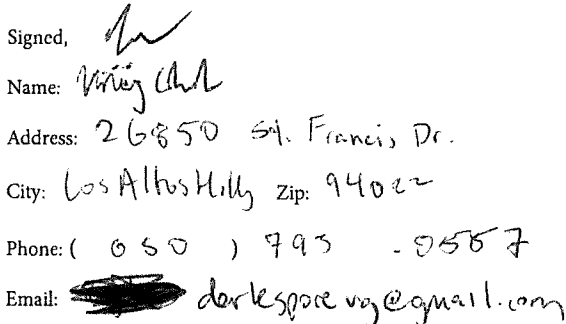 Signed,
Name:
Address: 26850 St. Francis Dr.
City: Los Altos Hills Zip: 94022
Phone: ( 050 ) 793 - 0557
Email: darkspore